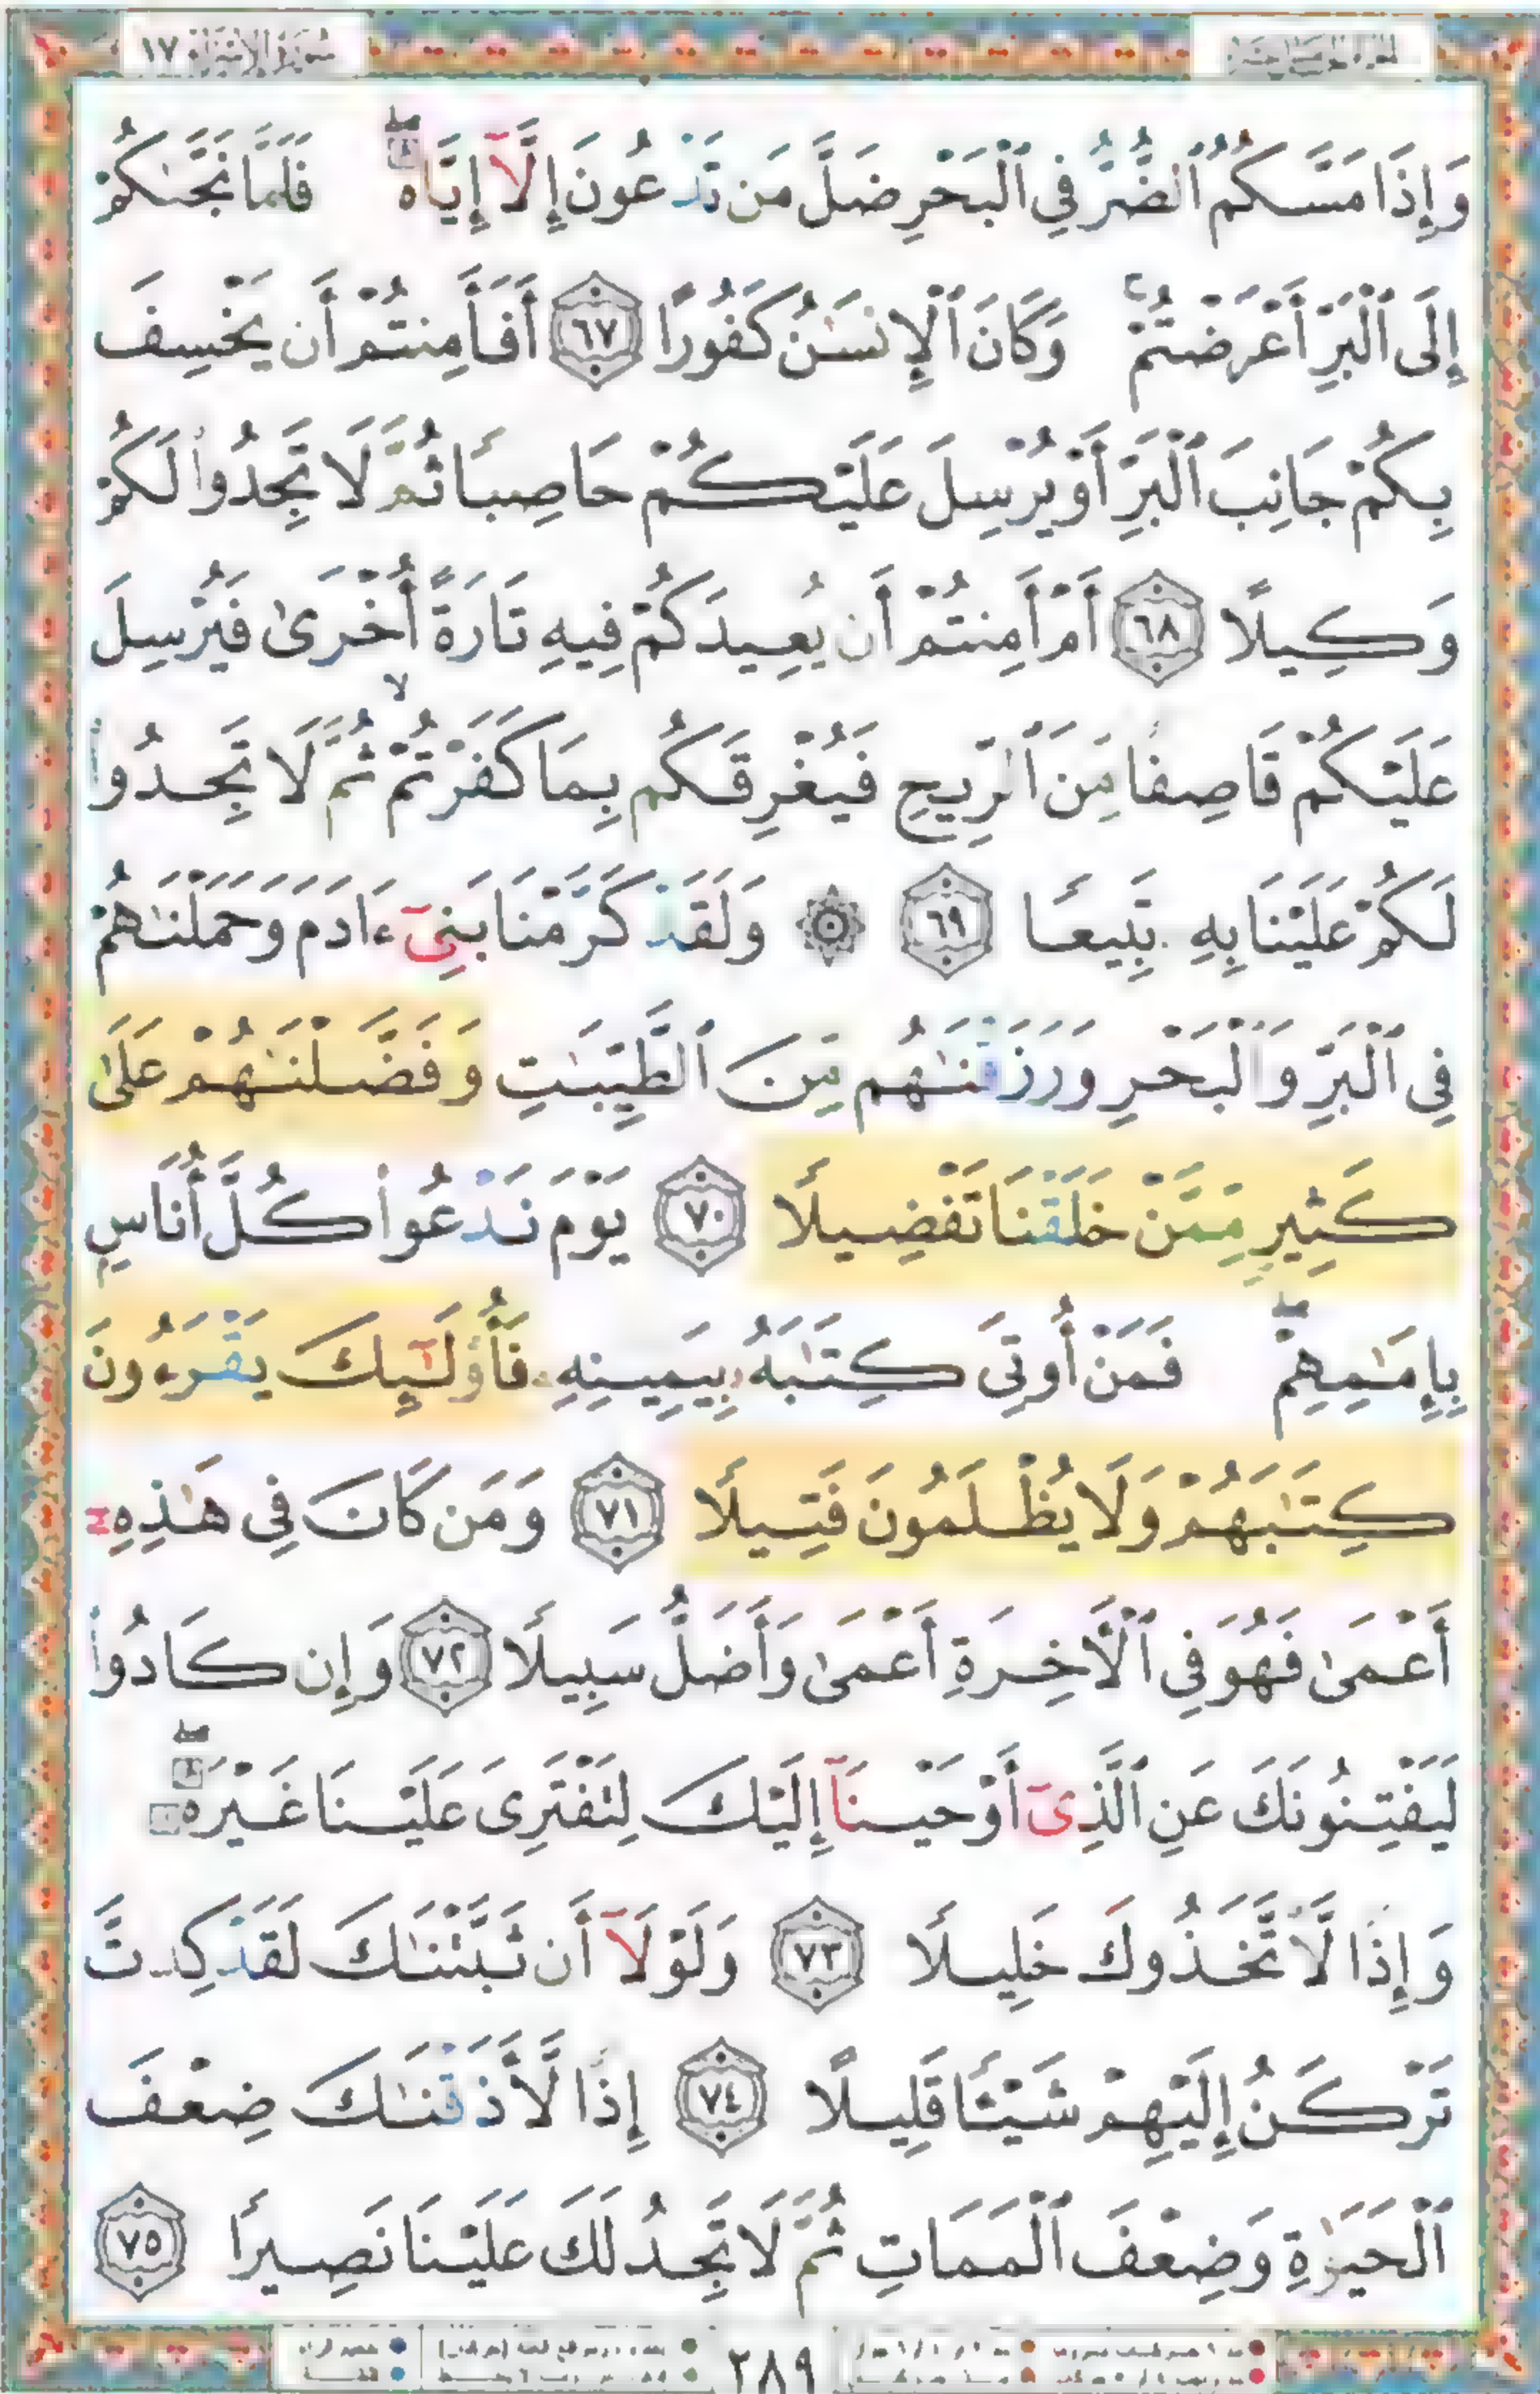 سُورَةُ الإِسْرَاءِ ١٧
وَإِذَا مَسَّكُمُ ٱلضُّرُّ فِي ٱلْبَحْرِ ضَلَّ مَن تَدْعُونَ إِلَّآ إِيَّاهُ ۖ فَلَمَّا نَجَّىٰكُمْ
إِلَى ٱلْبَرِّ أَعْرَضْتُمْ ۚ وَكَانَ ٱلْإِنسَـٰنُ كَفُورًا ٦٧ أَفَأَمِنتُمْ أَن يَخْسِفَ
بِكُمْ جَانِبَ ٱلْبَرِّ أَوْ يُرْسِلَ عَلَيْكُمْ حَاصِبًا ثُمَّ لَا تَجِدُوا۟ لَكُمْ
وَكِيلًا ٦٨ أَمْ أَمِنتُمْ أَن يُعِيدَكُمْ فِيهِ تَارَةً أُخْرَىٰ فَيُرْسِلَ
عَلَيْكُمْ قَاصِفًا مِّنَ ٱلرِّيحِ فَيُغْرِقَكُم بِمَا كَفَرْتُمْ ۙ ثُمَّ لَا تَجِدُوا۟
لَكُمْ عَلَيْنَا بِهِۦ تَبِيعًا ٦٩ ۞ وَلَقَدْ كَرَّمْنَا بَنِىٓ ءَادَمَ وَحَمَلْنَـٰهُمْ
فِى ٱلْبَرِّ وَٱلْبَحْرِ وَرَزَقْنَـٰهُم مِّنَ ٱلطَّيِّبَـٰتِ وَفَضَّلْنَـٰهُمْ عَلَىٰ
كَثِيرٍ مِّمَّنْ خَلَقْنَا تَفْضِيلًا ٧٠ يَوْمَ نَدْعُوا۟ كُلَّ أُنَاسٍۭ
بِإِمَـٰمِهِمْ ۖ فَمَنْ أُوتِىَ كِتَـٰبَهُۥ بِيَمِينِهِۦ فَأُو۟لَـٰٓئِكَ يَقْرَءُونَ
كِتَـٰبَهُمْ وَلَا يُظْلَمُونَ فَتِيلًا ٧١ وَمَن كَانَ فِى هَـٰذِهِۦٓ
أَعْمَىٰ فَهُوَ فِى ٱلْـَٔاخِرَةِ أَعْمَىٰ وَأَضَلُّ سَبِيلًا ٧٢ وَإِن كَادُوا۟
لَيَفْتِنُونَكَ عَنِ ٱلَّذِىٓ أَوْحَيْنَآ إِلَيْكَ لِتَفْتَرِىَ عَلَيْنَا غَيْرَهُۥ ۖ
وَإِذًا لَّٱتَّخَذُوكَ خَلِيلًا ٧٣ وَلَوْلَآ أَن ثَبَّتْنَـٰكَ لَقَدْ كِدتَّ
تَرْكَنُ إِلَيْهِمْ شَيْـًٔا قَلِيلًا ٧٤ إِذًا لَّأَذَقْنَـٰكَ ضِعْفَ
ٱلْحَيَوٰةِ وَضِعْفَ ٱلْمَمَاتِ ثُمَّ لَا تَجِدُ لَكَ عَلَيْنَا نَصِيرًا ٧٥
٢٨٩